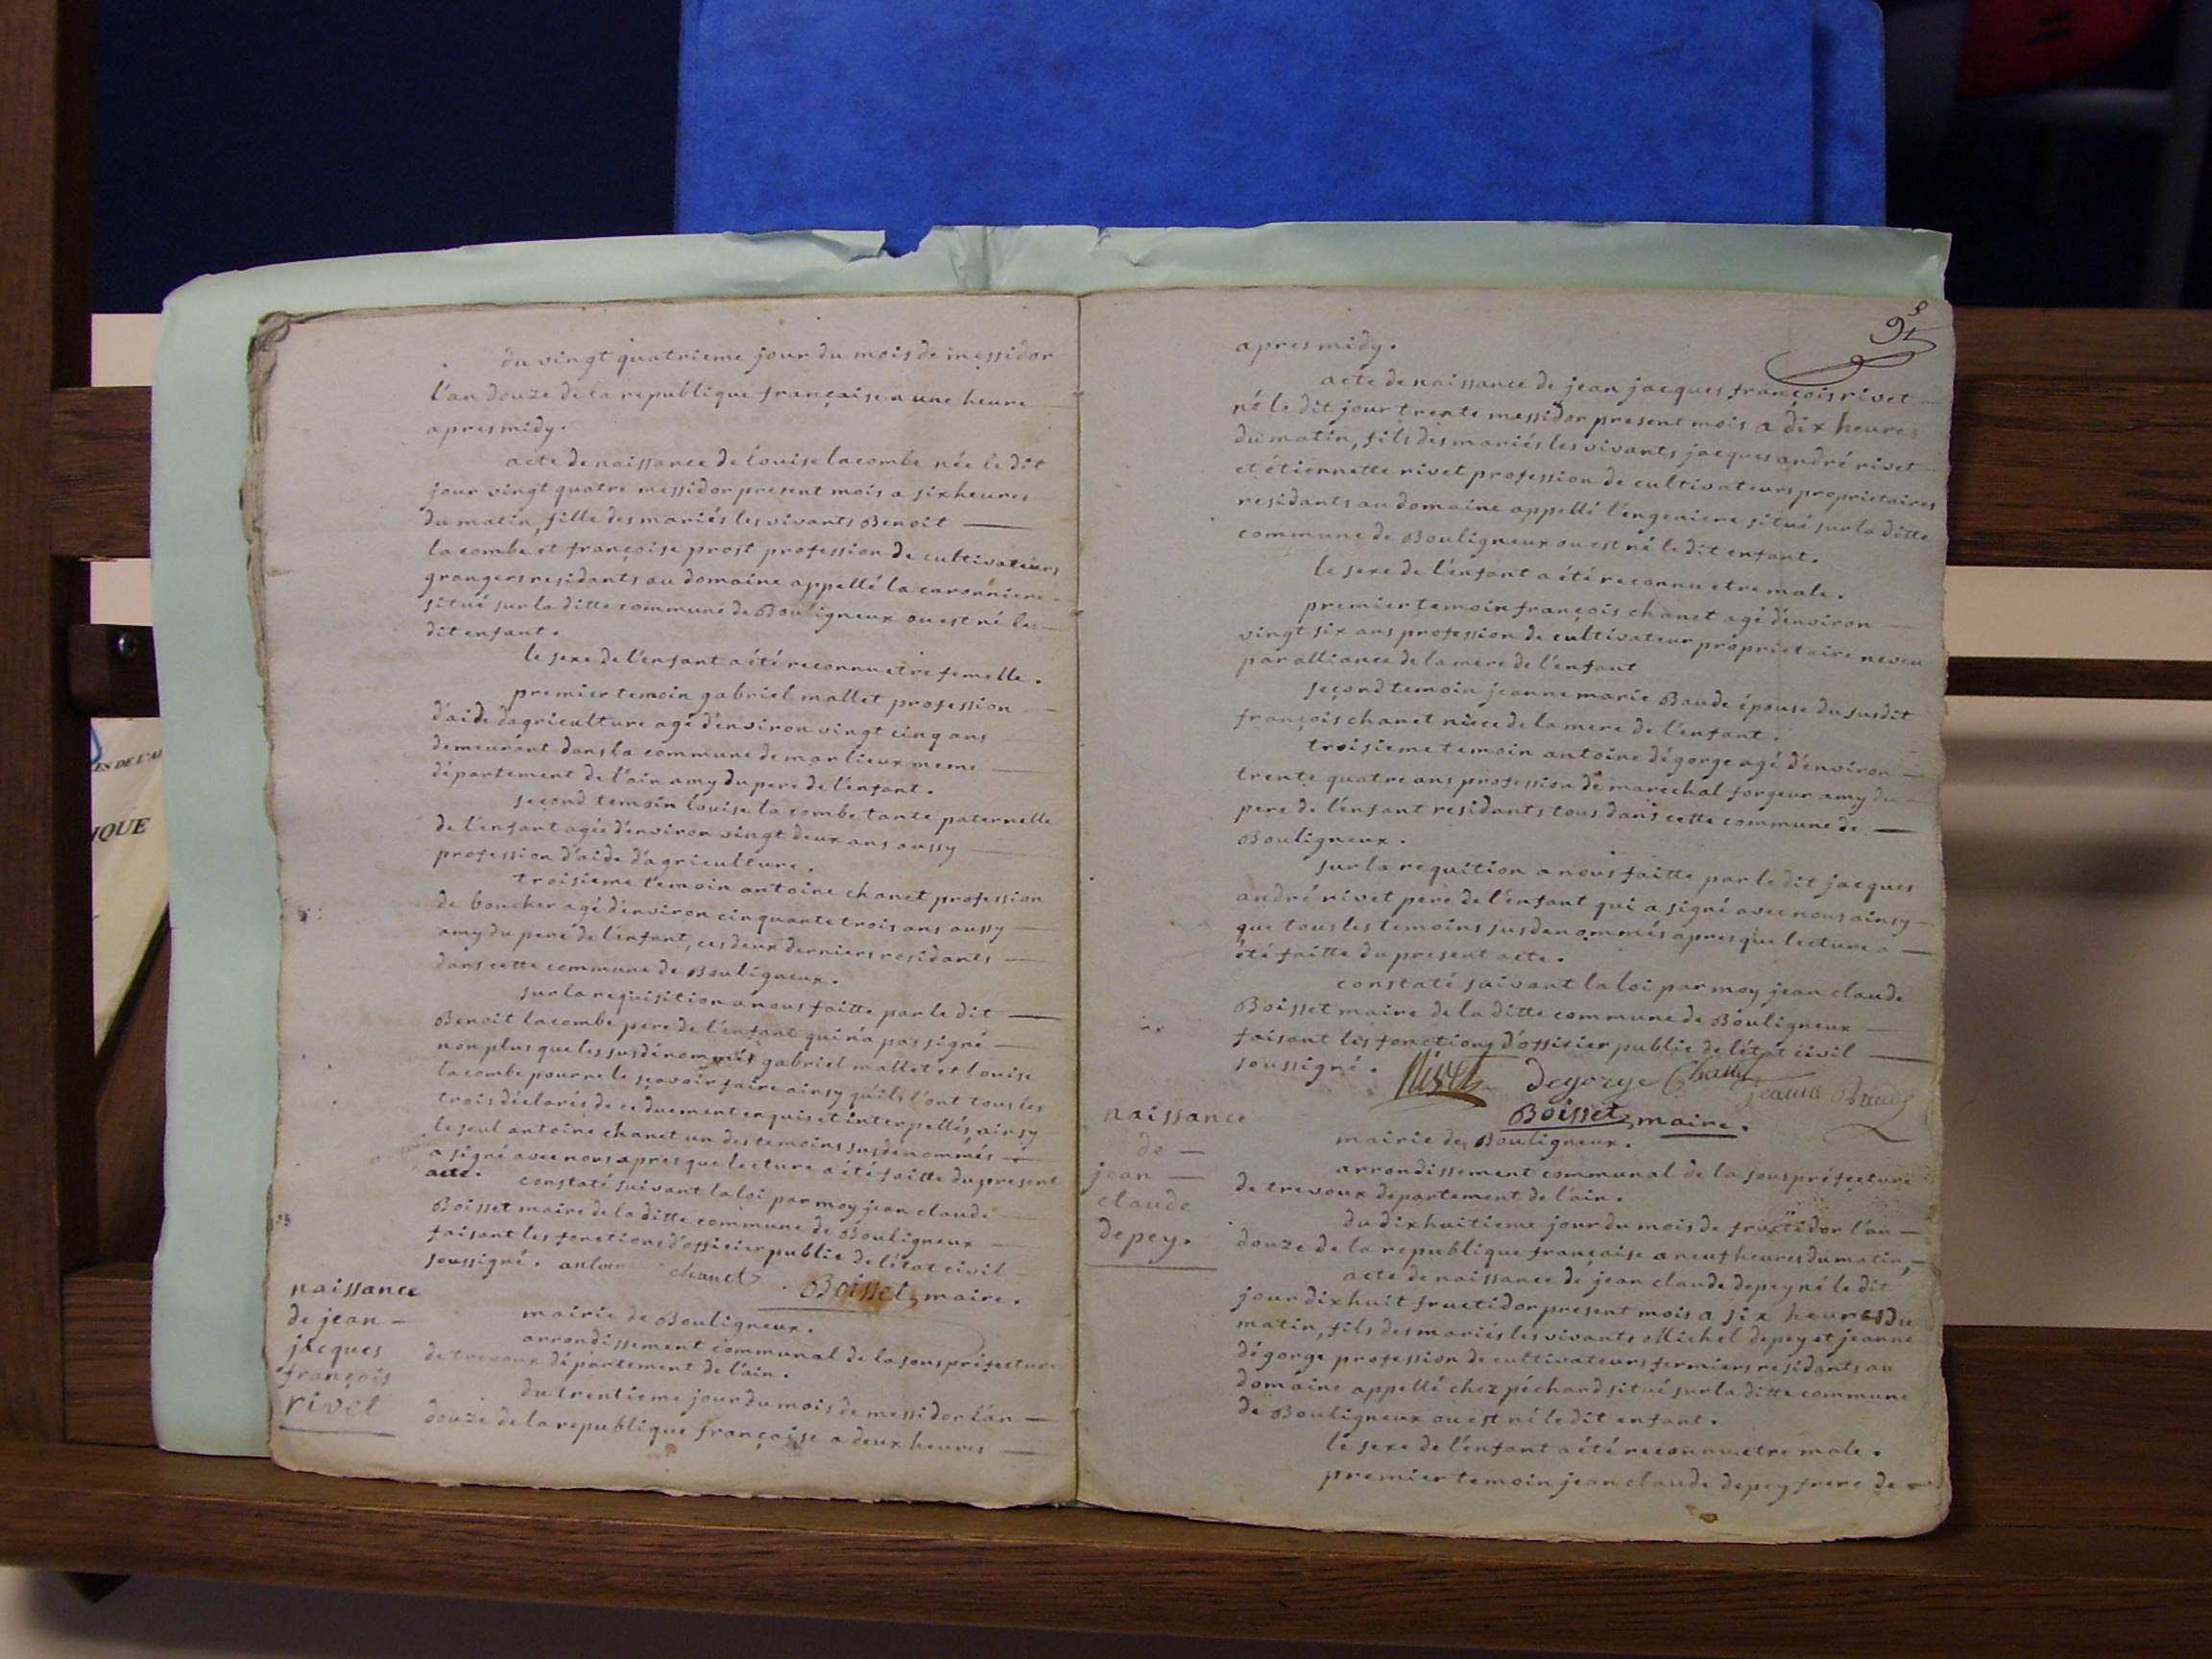 du vingt quatrieme jour du mois de messidor
l'an douze de la republique française a une heure
apres midy.
acte de naissance de louise lacombe née le dit
jour vingt quatre messidor present mois a six heures
du matin, fille des mariés les vivants Benoit
lacombe et françoise prost profession de cultivateurs
grangers residants au domaine appellé la caronniere
situé sur la ditte commune de Bouligneux ou est né le
dit enfant.
le sexe de l'enfant a été reconnu etre femelle.
premier temoin gabriel mallet profession
d'aide d'agriculture agé d'environ vingt cinq ans
demeurant dans la commune de marlieux meme
département de l'ain amy du pere de l'enfant.
second temoin louise lacombe tante paternelle
de l'enfant agée d'environ vingt deux ans aussy
profession d'aide d'agriculture.
troisieme temoin antoine chanet profession
de boucher agé d'environ cinquante trois ans aussy
amy du pere de l'enfant, ces deux derniers residants
dans cette commune de Bouligneux.
sur la requisition a nous faitte par le dit
Benoit lacombe pere de l'enfant qui n'a pas signé
non plus que les susdénommés gabriel mallet et louise
lacombe pour ne le sçavoir faire ainsy qu'ils l'ont tous les
trois déclarés de ce duement enquis et interpellés, ainsy
le seul antoine chanet un des temoins susdenommés
a signé avec nous apres que lecture a été faitte du present
acte. constaté suivant la loi par moy jean claude
Boisset maire de la ditte commune de Bouligneux
faisant les fonctions d'officier public de l'état civil
soussigné. antoine chanet Boisset, maire.
naissance
de jean
jacques
françois
rivet
mairie de Bouligneux.
arrondissement communal de la sous préfecture
de trevoux département de l'ain.
du trentieme jour du mois de messidor l'an
douze de la republique française a deux heures
apres midy.
acte de naissance de jean jacques françois rivet
né le dit jour trente messidor present mois a dix heures
du matin, fils des mariés les vivants jacques andré rivet
et étiennette rivet profession de cultivateurs proprietaires
residants au domaine appellé l'engeniere situé sur la ditte
commune de Bouligneux ou est né le dit enfant.
le sexe de l'enfant a été reconnu etre male.
premier temoin françois chanet agé d'environ
vingt six ans profession de cultivateur proprietaire neveu
par alliance de la mere de l'enfant
second temoin jeanne marie Baude épouse du susdit
françois chanet niéce de la mere de l'enfant.
troisieme temoin antoine dégorge agé d'environ
trente quatre ans profession de marechal forgeur amy du
pere de l'enfant residants tous dans cette commune de
Bouligneux.
sur la requition a nous faitte par le dit jacques
andré rivet pere de l'enfant qui a signé avec nous ainsy
que tous les temoins susdenommés apres que lecture a
été faitte du present acte.
constaté suivant la loi par moy jean claude
Boisset maire de la ditte commune de Bouligneux
faisant les fonctions d'officier public de l'état civil
soussigné. Rivet Degorge Chanet
jeanne
Boisset, maire.
naissance
de
jean
claude
depey.
mairie de Bouligneux.
arrondissement communal de la sous préfecture
de trevoux departement de l'ain.
du dixhuitieme jour du mois de fructidor l'an
douze de la republique française a neuf heures du matin,
acte de naissance de jean claude depey né le dit
jour dixhuit fructidor present mois a six heures du
matin, fils des mariés les vivants Michel depey et jeanne
dégorge profession de cultivateurs fermiers residants au
domaine appellé chez péchard situé sur la ditte commune
de Bouligneux ou est né le dit enfant.
le sexe de l'enfant a été reconnu etre male.
premier temoin jean claude depey frere de